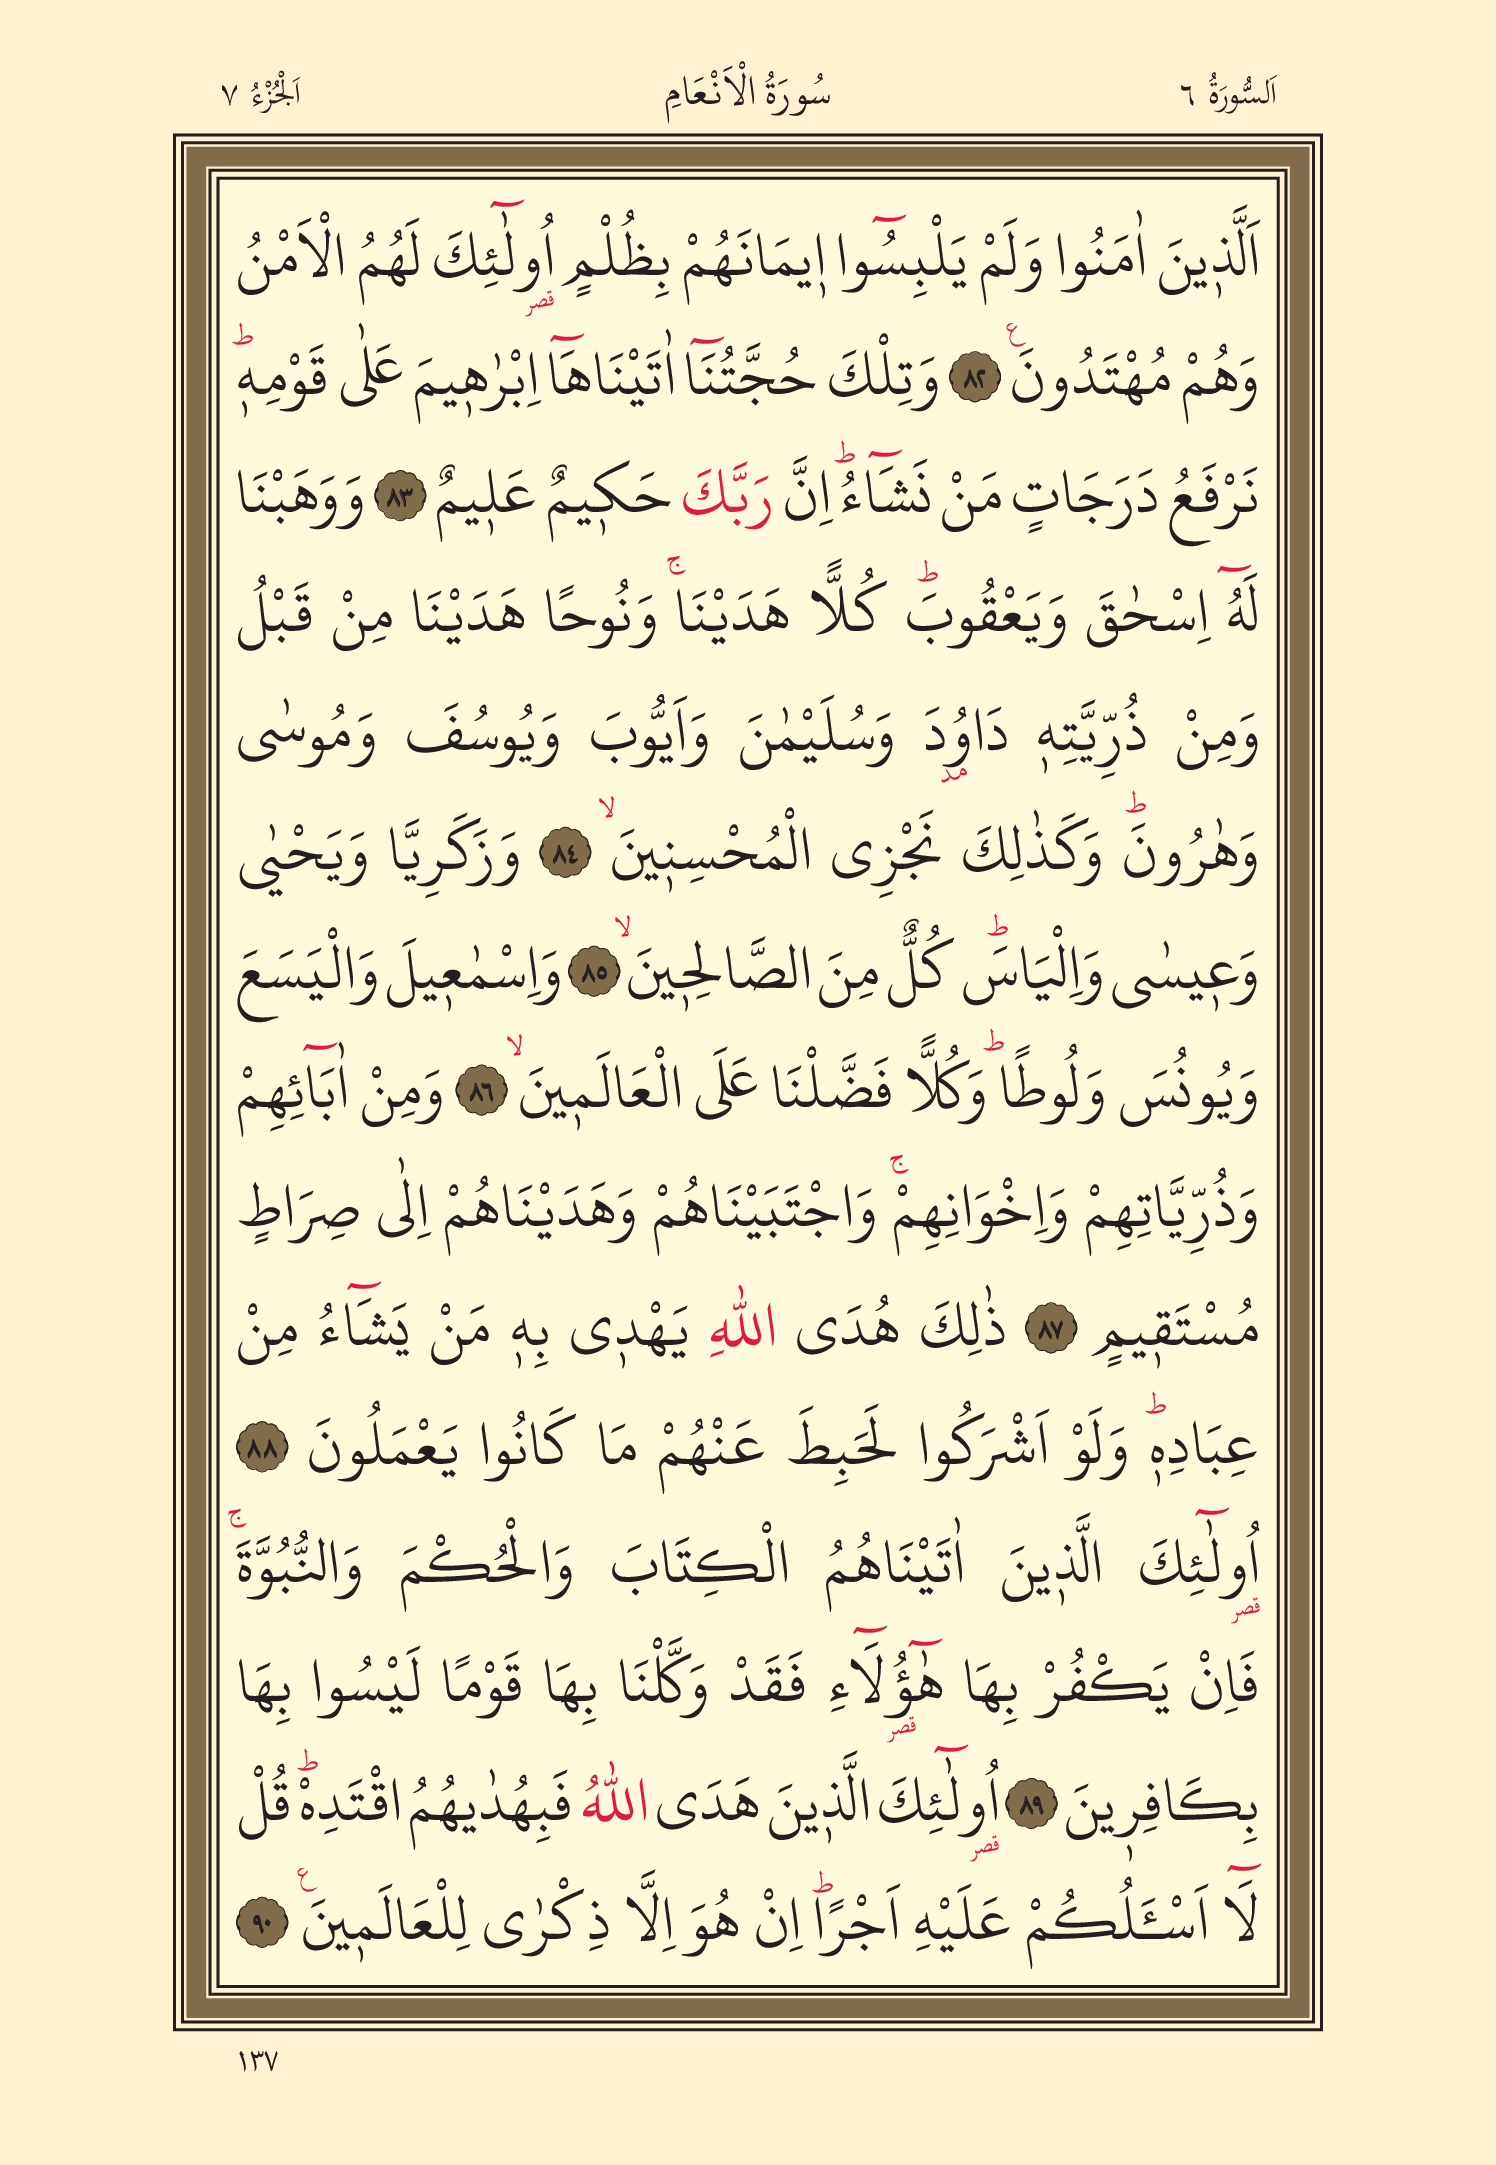 اَلسُّورَةُ ٦ سُورَةُ الْاَنْعَامِ اَلْجُزْءُ ٧
اَلَّذ۪ينَ اٰمَنُوا وَلَمْ يَلْبِسُٓوا ا۪يمَانَهُمْ بِظُلْمٍ اُو۬لٰٓئِكَ لَهُمُ الْاَمْنُ
قصر
وَهُمْ مُهْتَدُونَ۟ ع ﴿٨٢﴾ وَتِلْكَ حُجَّتُنَٓا اٰتَيْنَاهَٓا اِبْرٰه۪يمَ عَلٰى قَوْمِه۪ۜ
نَرْفَعُ دَرَجَاتٍ مَنْ نَشَٓاءُۜ اِنَّ رَبَّكَ حَك۪يمٌ عَل۪يمٌ ﴿٨٣﴾ وَوَهَبْنَا
لَهُٓ اِسْحٰقَ وَيَعْقُوبَۜ كُلًّا هَدَيْنَاۚ وَنُوحًا هَدَيْنَا مِنْ قَبْلُ
وَمِنْ ذُرِّيَّتِه۪ دَاوُدَ وَسُلَيْمٰنَ وَاَيُّوبَ وَيُوسُفَ وَمُوسٰى
مد
وَهٰرُونَۜ وَكَذٰلِكَ نَجْزِى الْمُحْسِن۪ينَۙ ﴿٨٤﴾ وَزَكَرِيَّا وَيَحْيٰى
وَع۪يسٰى وَاِلْيَاسَۜ كُلٌّ مِنَ الصَّالِح۪ينَۙ ﴿٨٥﴾ وَاِسْمٰع۪يلَ وَالْيَسَعَ
وَيُونُسَ وَلُوطًاۜ وَكُلًّا فَضَّلْنَا عَلَى الْعَالَم۪ينَۙ ﴿٨٦﴾ وَمِنْ اٰبَٓائِهِمْ
وَذُرِّيَّاتِهِمْ وَاِخْوَانِهِمْۚ وَاجْتَبَيْنَاهُمْ وَهَدَيْنَاهُمْ اِلٰى صِرَاطٍ
مُسْتَق۪يمٍ ﴿٨٧﴾ ذٰلِكَ هُدَى اللّٰهِ يَهْد۪ى بِه۪ مَنْ يَشَٓاءُ مِنْ
عِبَادِه۪ۜ وَلَوْ اَشْرَكُوا لَحَبِطَ عَنْهُمْ مَا كَانُوا يَعْمَلُونَ ﴿٨٨﴾
اُو۬لٰٓئِكَ الَّذ۪ينَ اٰتَيْنَاهُمُ الْكِتَابَ وَالْحُكْمَ وَالنُّبُوَّةَۚ
قصر
فَاِنْ يَكْفُرْ بِهَا هٰٓؤُ۬لَٓاءِ فَقَدْ وَكَّلْنَا بِهَا قَوْمًا لَيْسُوا بِهَا
قصر
بِكَافِر۪ينَ ﴿٨٩﴾ اُو۬لٰٓئِكَ الَّذ۪ينَ هَدَى اللّٰهُ فَبِهُدٰيهُمُ اقْتَدِهْۜ قُلْ
قصر
لَٓا اَسْـَٔلُكُمْ عَلَيْهِ اَجْرًاۜ اِنْ هُوَ اِلَّا ذِكْرٰى لِلْعَالَم۪ينَ۟ ع ﴿٩٠﴾
١٣٧